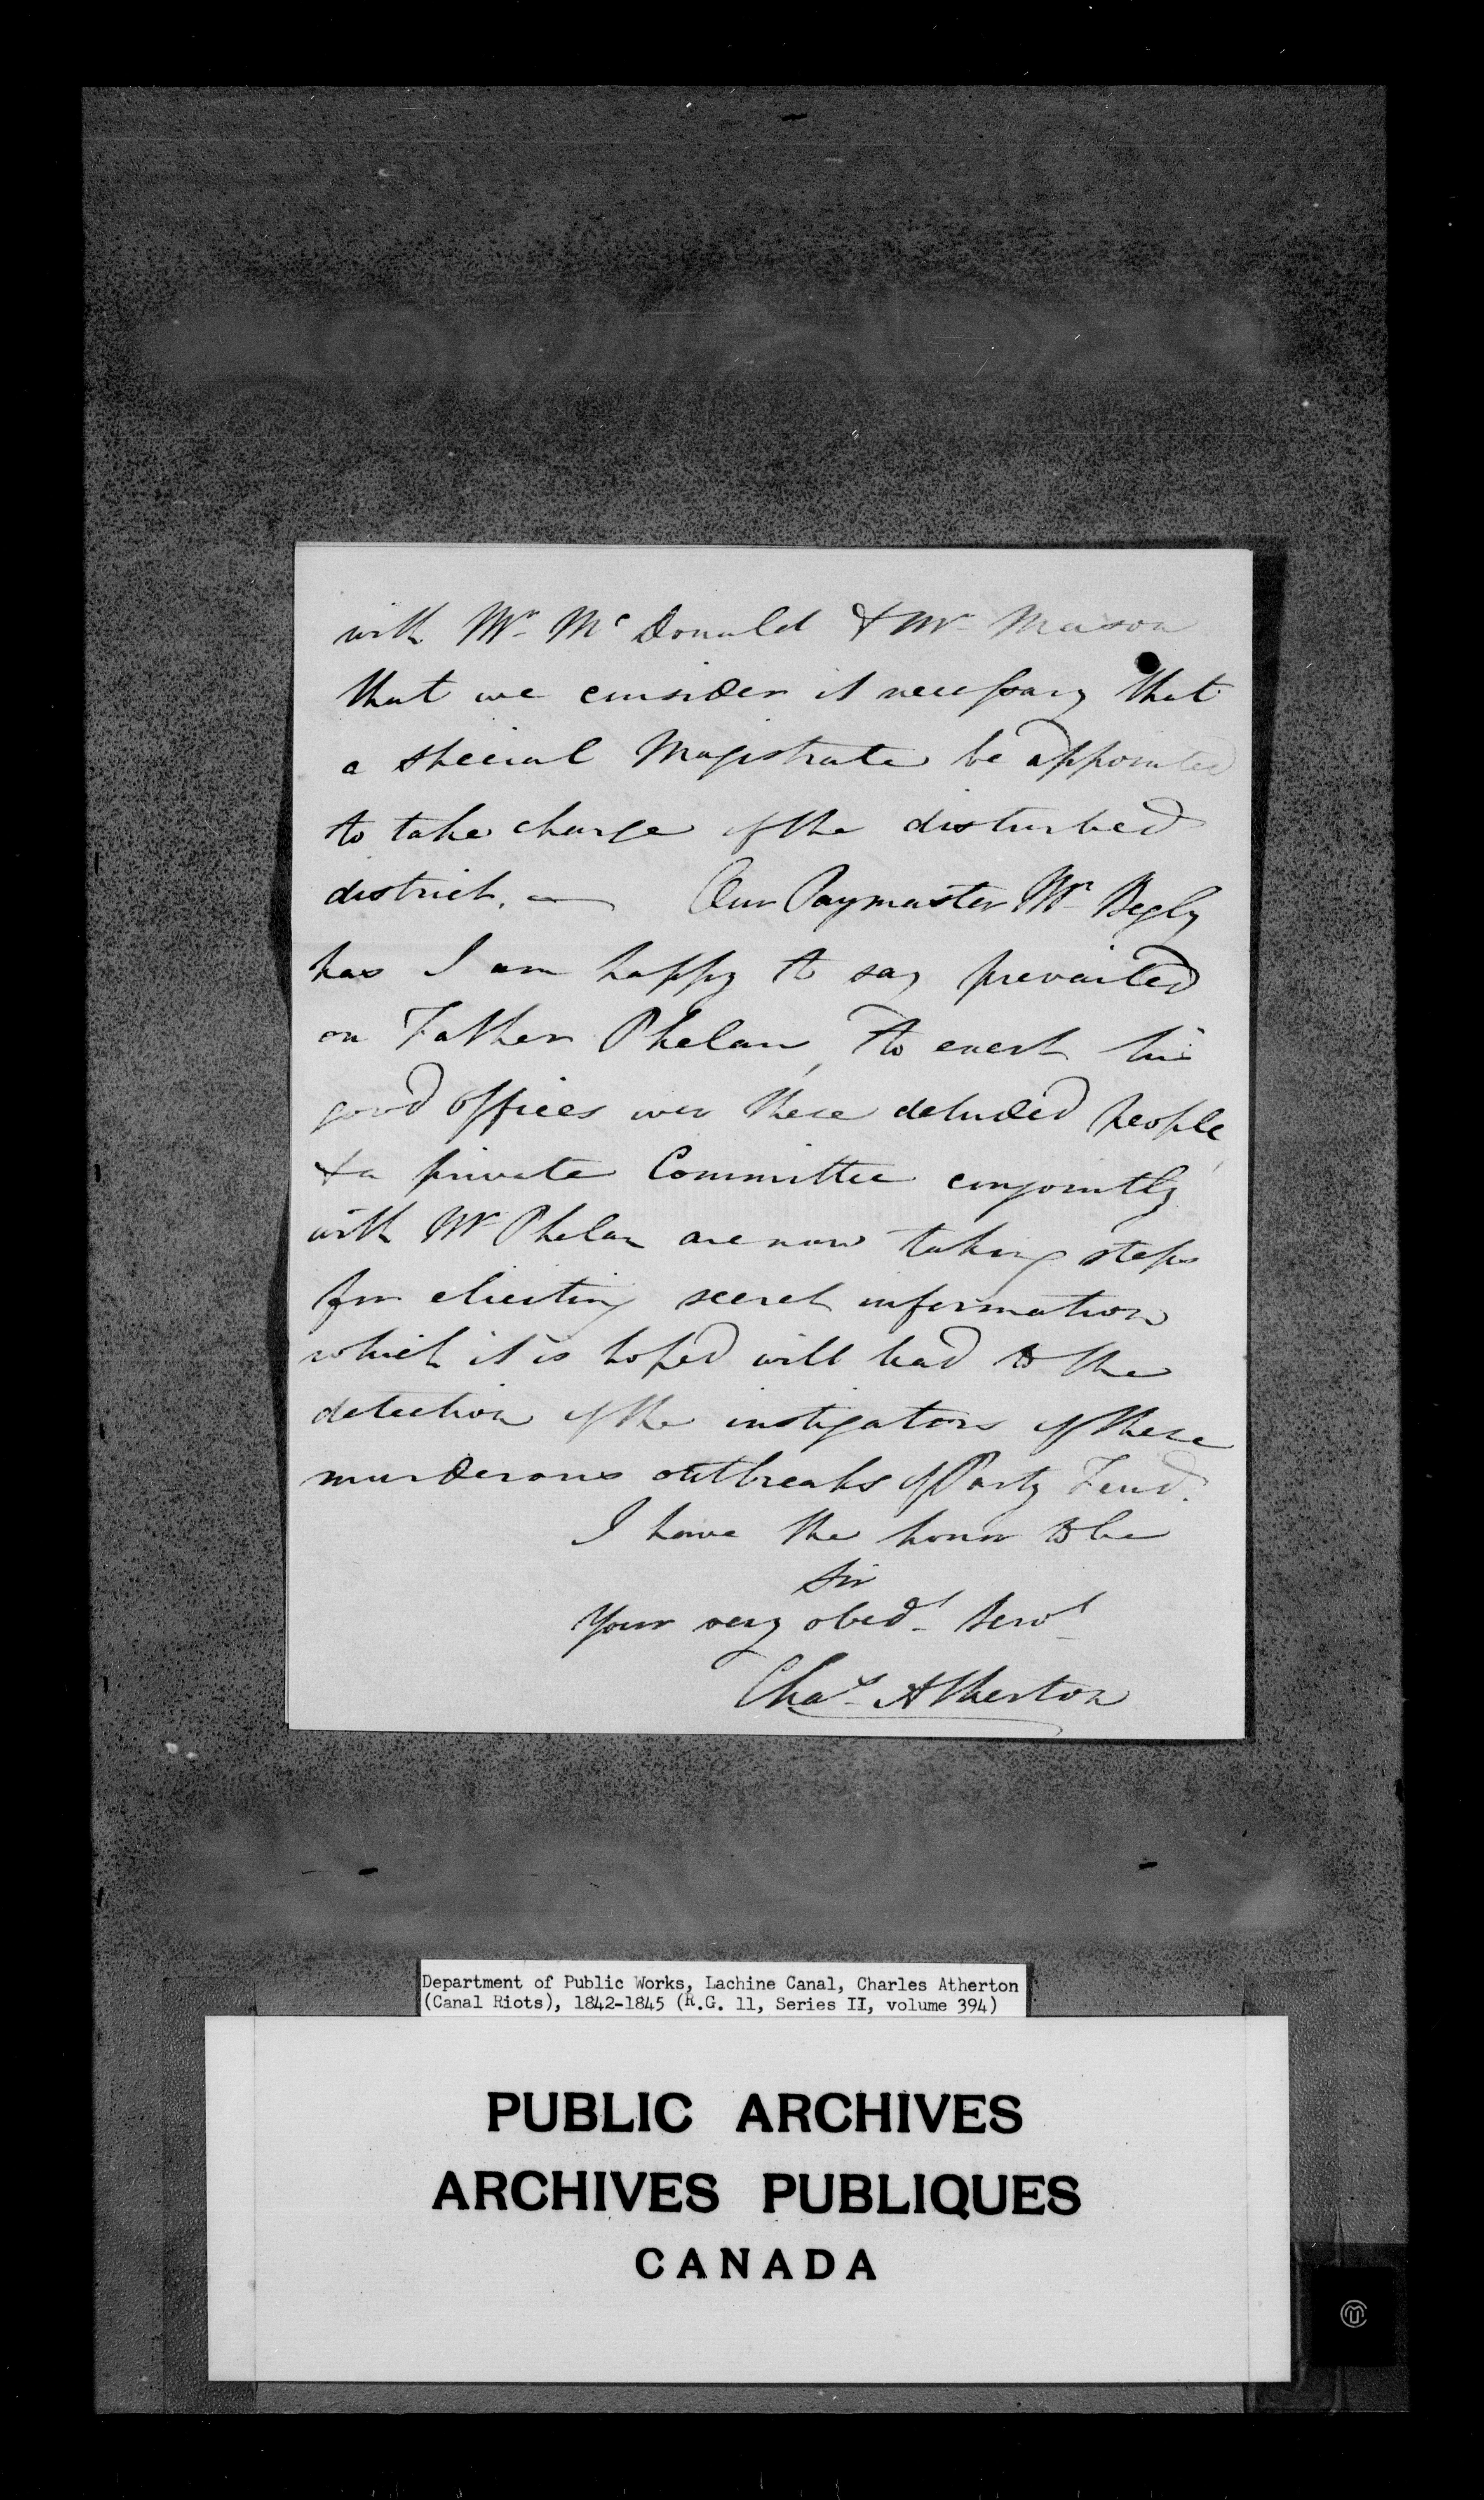 with Mr McDonald & Mr Mason
that we consider it necessary that
a special Magistrate be appointed
to take charge of the disturbed
district. — Our Paymaster Mr Begly
has I am happy to say prevailed
on Father Phelan, to exert his
good offices over these deluded people,
& a private Committee conjointly
with Mr Phelan are now taking steps
for eliciting secret information
which it is hoped will lead to the
detection of the instigators of these
murderous outbreaks of Party Feud.
I have the honor to be
Sir
Your very obedt Servt
Chas Atherton
Department of Public Works, Lachine Canal, Charles Atherton
(Canal Riots), 1842-1845 (R.G. 11, Series II, volume 394)
PUBLIC ARCHIVES
ARCHIVES PUBLIQUES
CANADA